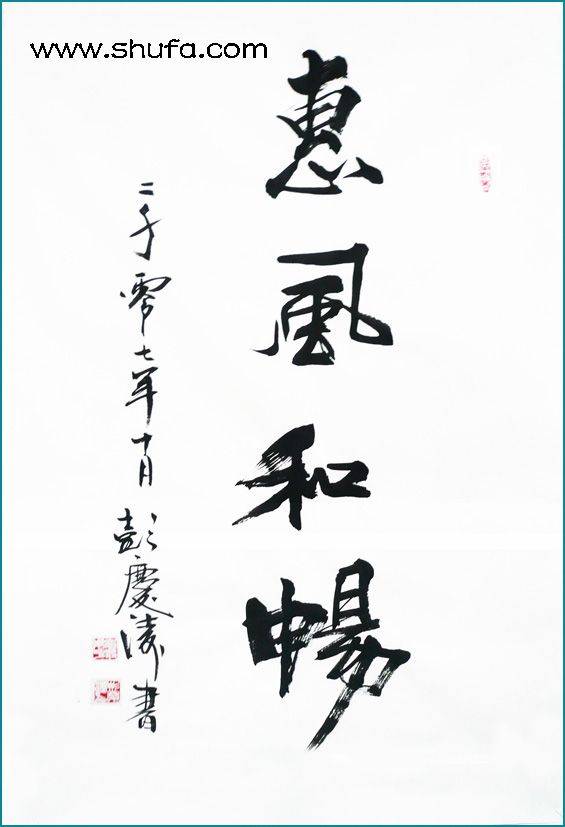 www.shufa.com
惠風和暢
二千零七年十月彭慶濤書